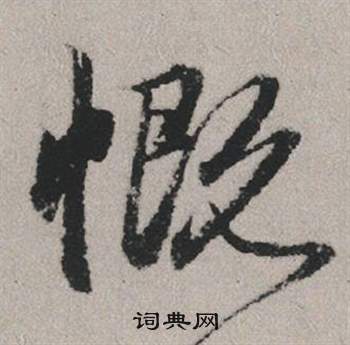 慨
词典网